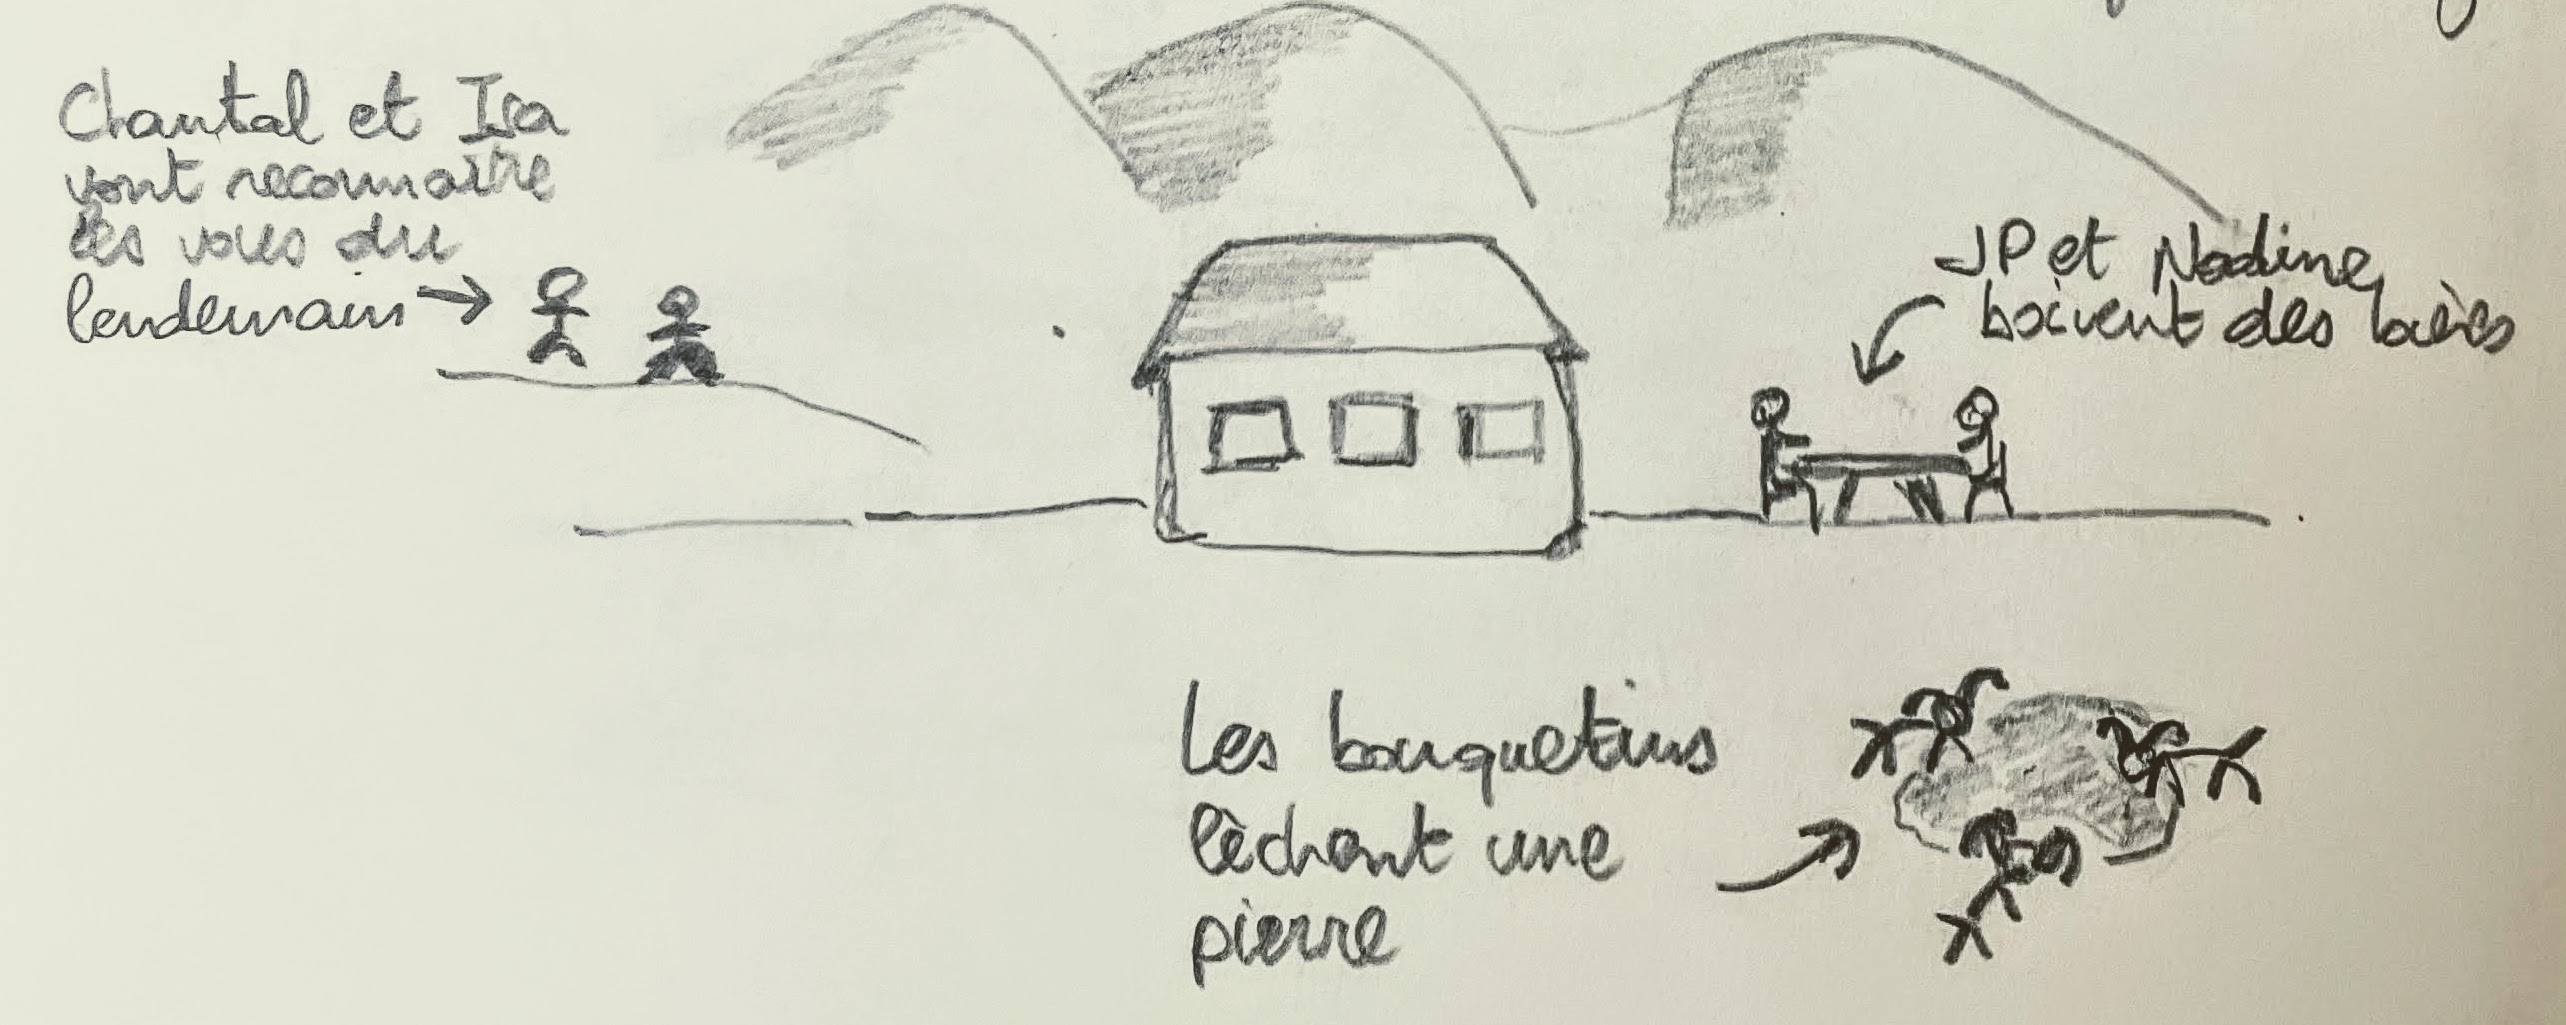 Chantal et Isa
vont reconnaître
les voies du
lendemain
JP et Nadine
boivent des bières
Les bouquetins
lèchent une
pierre